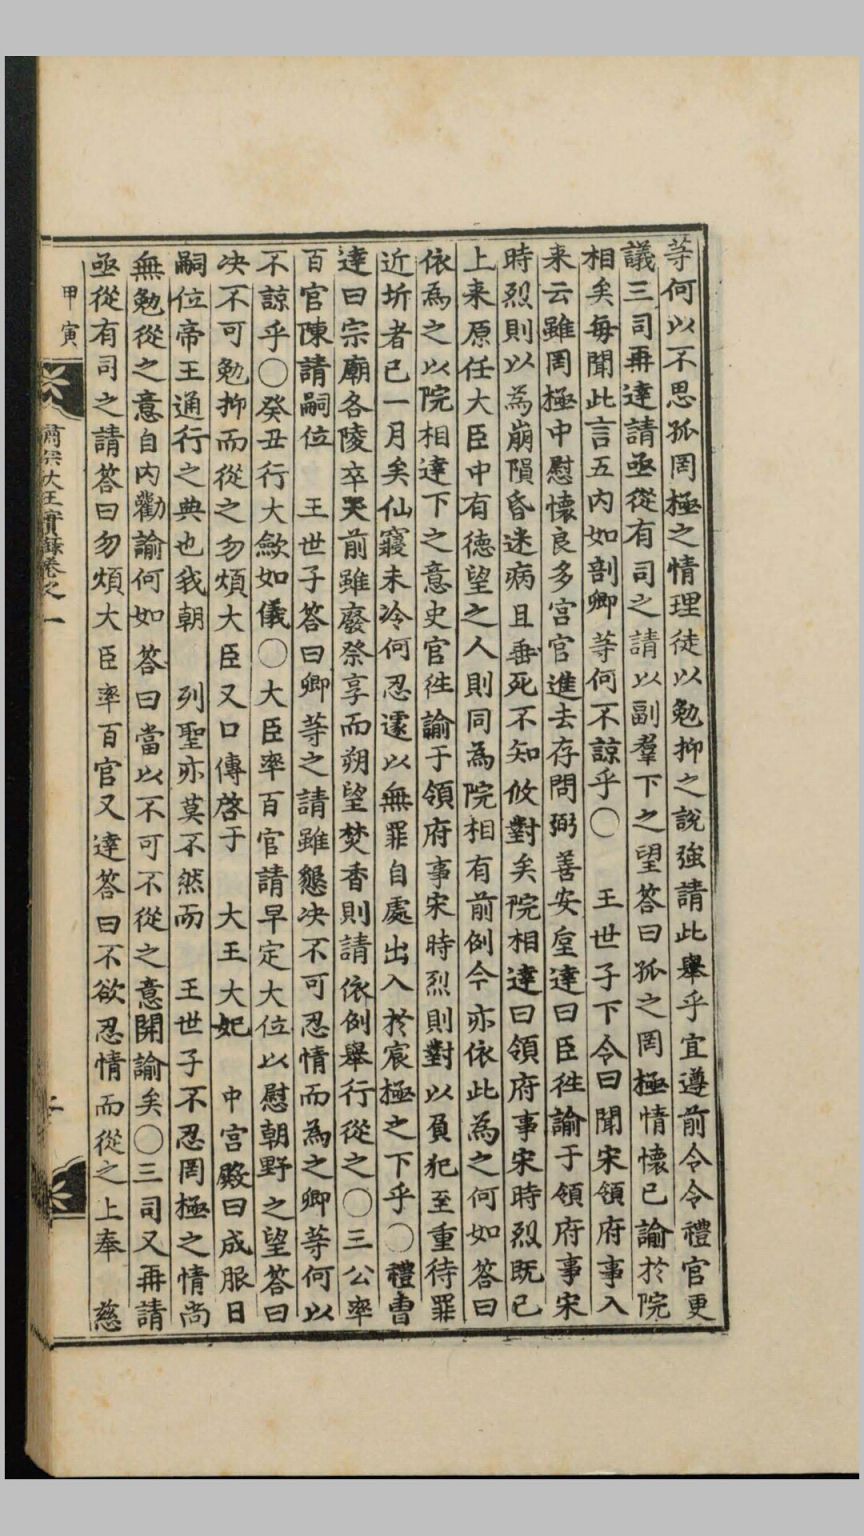 等何以不思孤罔極之情理徒以勉抑之說強請此擧乎宜遵前令令禮官更
議三司再達請亟從有司之請以副羣下之望答曰孤之罔極情懷已諭於院
相矣每聞此言五內如剖卿等何不諒乎○ 王世子下令曰聞宋領府事入
来云雖罔極中慰懷良多宮官進去存問弼善安垕達曰臣徃諭于領府事宋
時烈則以為崩隕昏迷病且垂死不知攸對矣院相達曰領府事宋時烈旣已
上来原任大臣中有德望之人則同為院相有前例今亦依此為之何如答曰
依爲之以院相達下之意史官徃諭于領府事宋時烈則對以負犯至重待罪
近圻者已一月矣仙寢未冷何忍遽以無罪自處出入於宸極之下乎○禮曹
達曰宗廟各陵卒哭前雖廢祭享而朔望焚香則請依例擧行從之○三公率
百官陳請嗣位 王世子答曰卿等之請雖懇决不可忍情而為之卿等何以
不諒乎○癸丑行大歛如儀○大臣率百官請早定大位以慰朝野之望答曰
决不可勉抑而從之勿煩大臣又口傳啓于 大王大妃 中宮殿曰成服日
嗣位帝王通行之典也我朝 列聖亦莫不然而 王世子不忍罔極之情尚
無勉從之意自內勸諭何如 答曰當以不可不從之意開諭矣○三司又再請
亟從有司之請答曰勿煩大臣率百官又達答曰不欲忍情而從之上奉 慈
甲寅
肅宗大王實錄卷之一